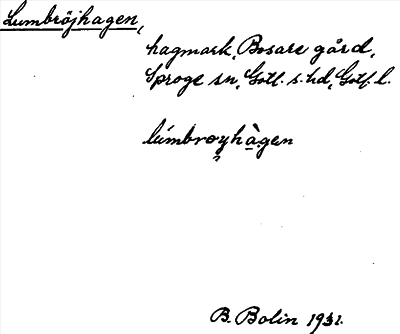 Lumbröjhagen,
hagmark, Bosare gård,
Sproge sn, Gotl. s. hd, Gotl. l.
lúmbrøyhàgen
B. Bolin 1931.